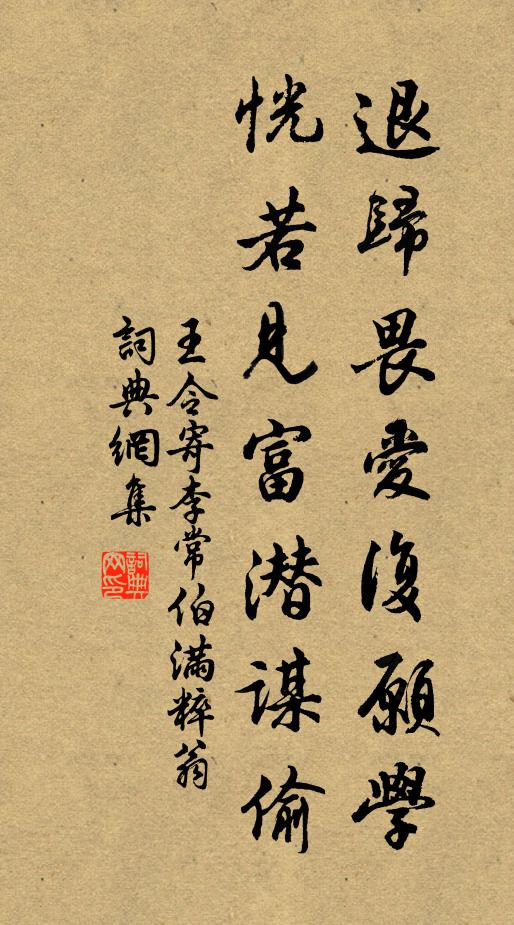 退歸畏愛復願學
恍若見富潜謀偷
王令寄李常伯滿粹翁
詞典網集
詞典
网印